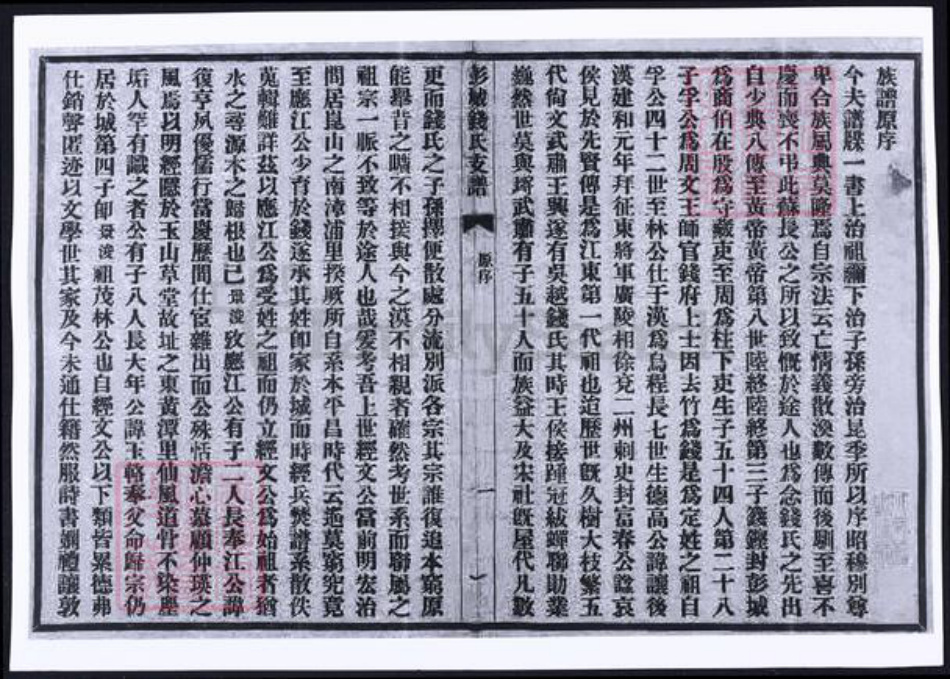 族譜原序
今夫譜牒一書上治祖禰下治子孫旁治昆季所以序昭穆別尊
卑合族屬典莫隆焉自宗法云亡情義散渙數傳而後馴至喜不
慶而喪不弔此蘇長公之所以致慨於途人也為念錢氏之先出
自少典八傳至黃帝黃帝第八世陸終陸終第三子籛鏗封彭城
為商伯在殷為守藏吏至周為柱下吏生子五十四人第二十八
子孚公為周文王師官錢府上士因去竹為錢是為定姓之祖自
孚公四十二世至林公仕于漢為烏程長七世生德高公諱讓後
漢建和元年拜征東將軍廣陵相徐兗二州刺史封富春公諡哀
侯見於先賢傳是為江東第一代祖也迨歷世既久樹大枝繁五
代尚文武肅王興遂有吳越錢氏其時王侯接踵冠紱蟬聯勛業
巍然世莫與埒武肅有子五十人而族益大及宋社既屋代凡數
彭城錢氏支譜
原序
一
更而錢氏之子孫擇便散處分流別派各宗其宗誰復追本窮原
能舉昔之曠不相接與今之漠不相親者確然考世系而聯屬之
祖宗一脈不致等於途人也哉爰考吾上世經文公當前明宏治
間居崑山之南漳浦里揆厥所自系本平昌時代云遙莫窮究竟
至應江公少育於錢遂承其姓卽家於城而時經兵燹譜系散佚
蒐輯難詳茲以應江公為受姓之祖而仍立經文公為始祖者猶
水之尋源木之歸根也已景浚攷應江公有子二人長奉江公諱
復亨夙優儒行當慶歷間仕宦雜出而公殊恬澹心慕顧仲瑛之
風焉以明經隱於玉山草堂故址之東黃潭里仙風道骨不染塵
垢人罕有識之者公有子八人長大年公諱玉 奉父命歸宗仍
居於城第四子卽景浚祖茂林公也自經文公以下類皆累德弗
仕銷聲匿迹以文學世其家及今未通仕籍然服詩書嫻禮讓敦